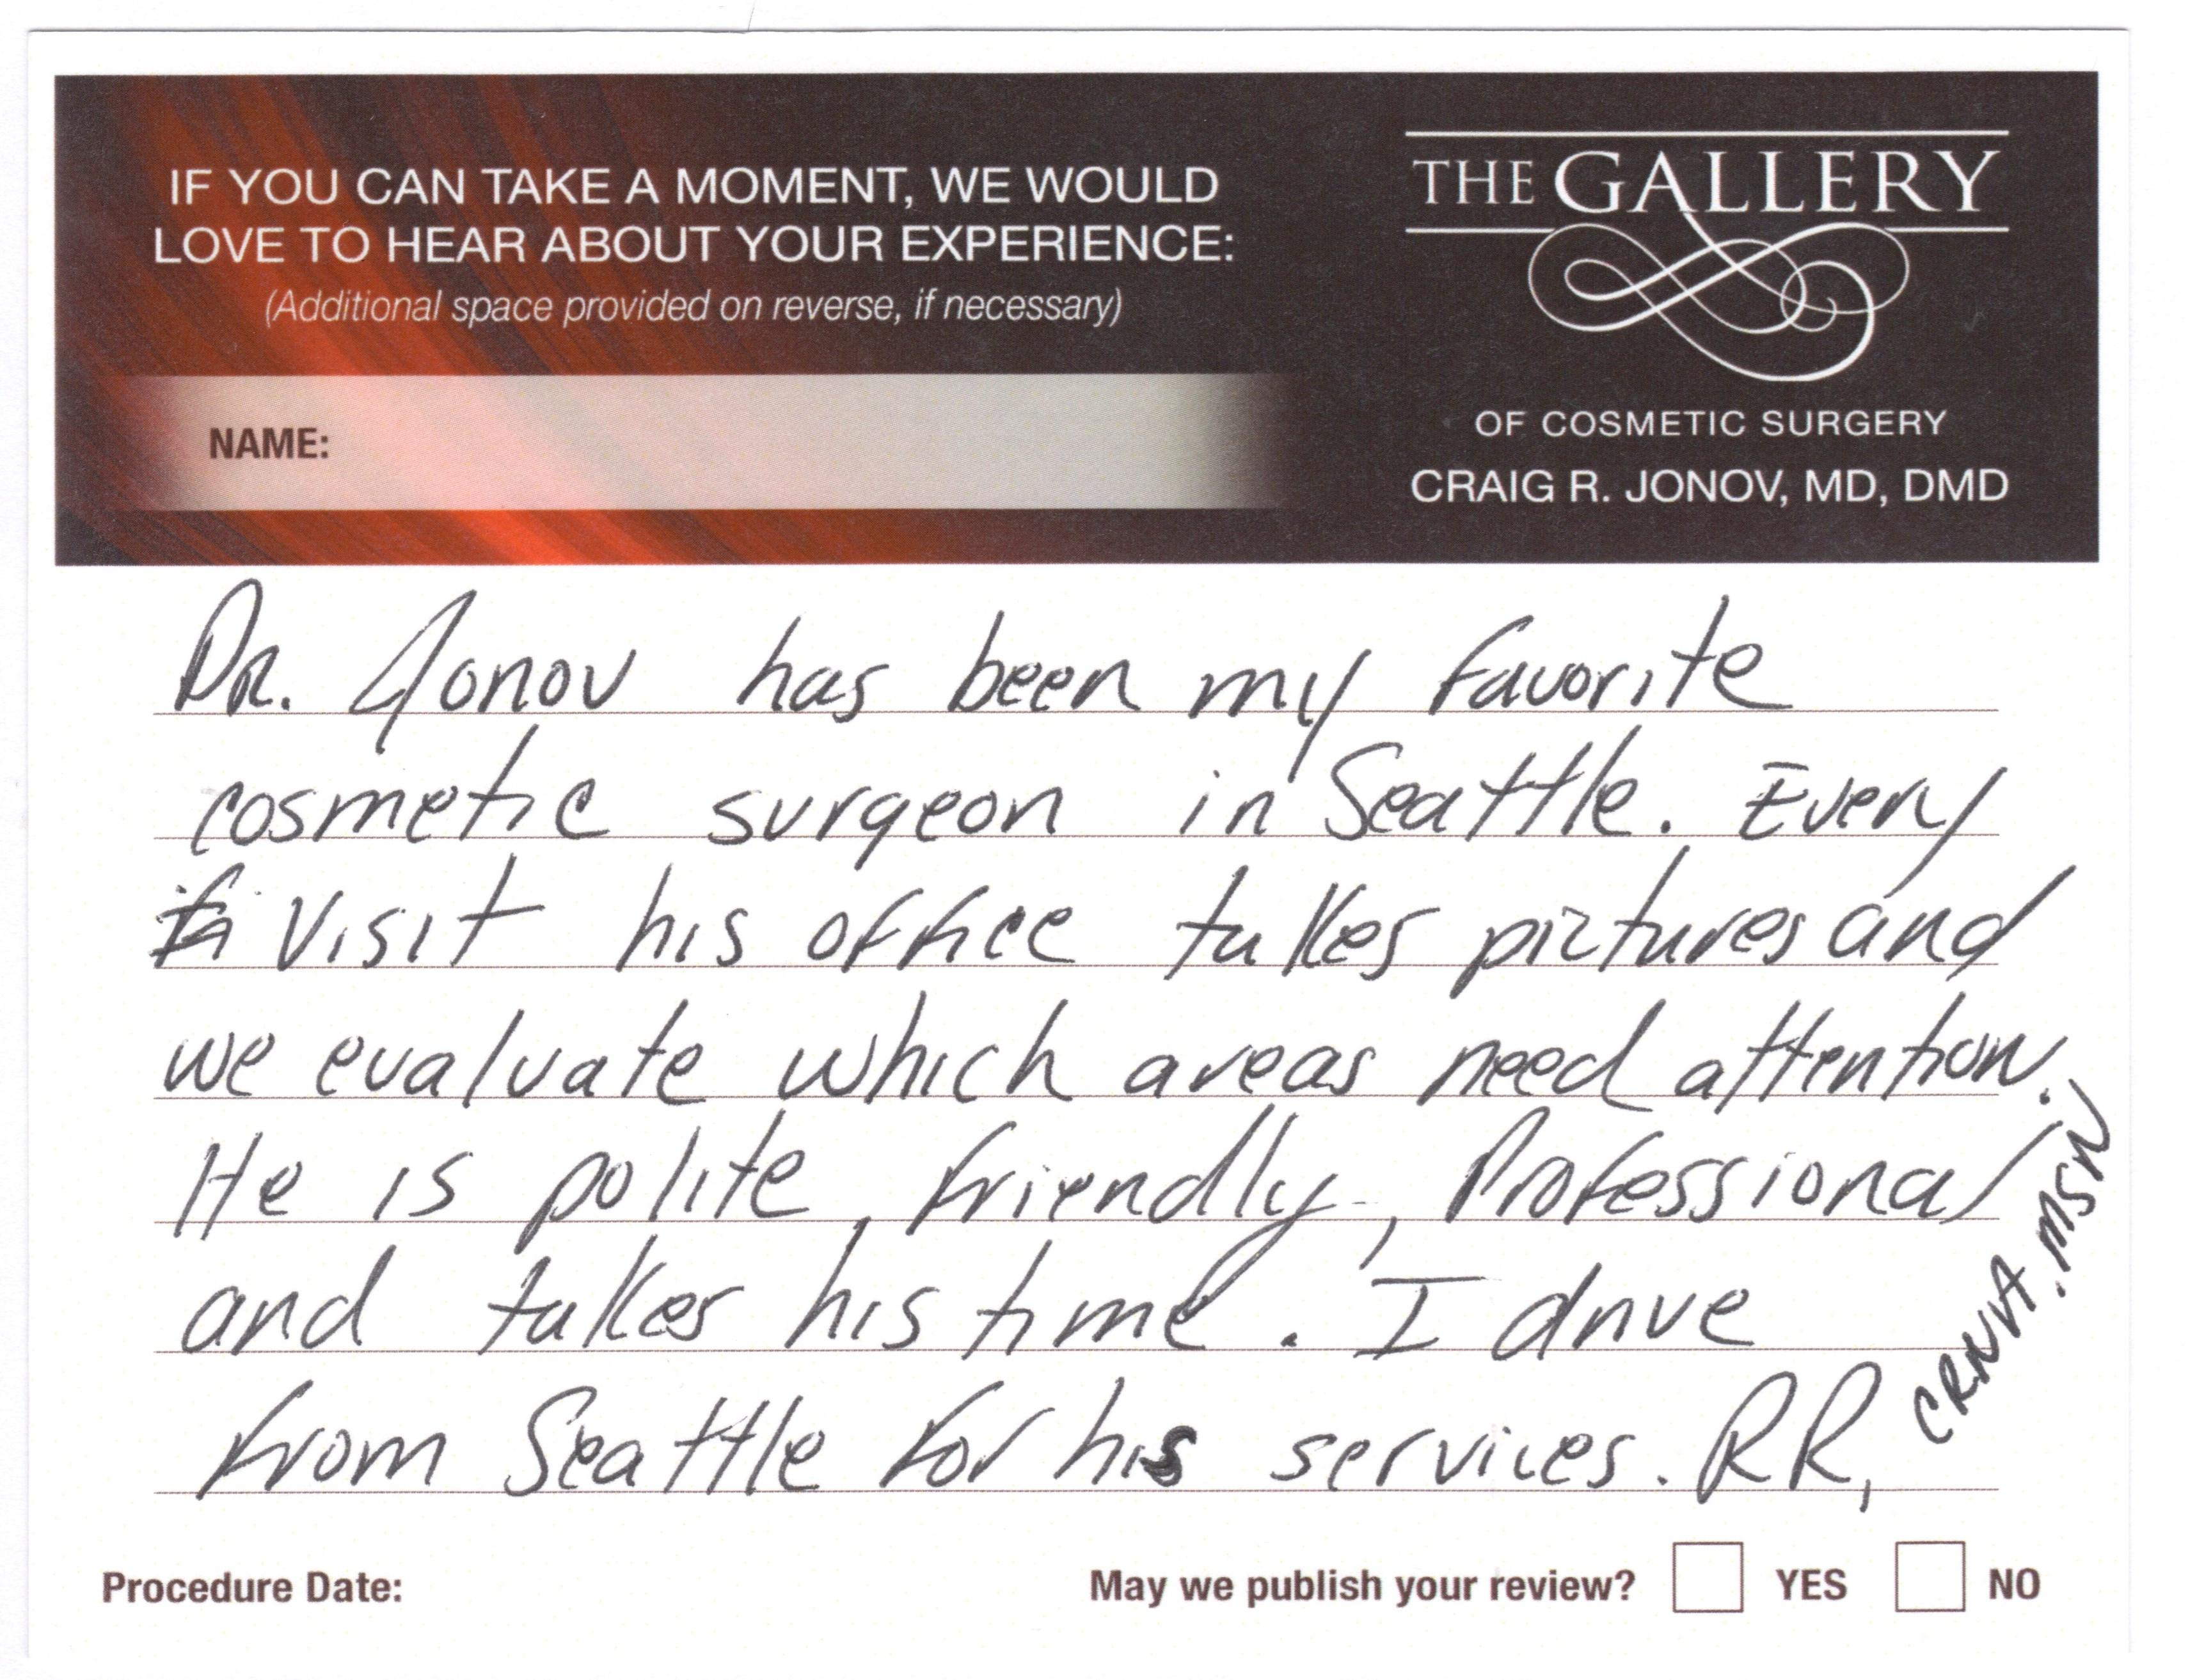 IF YOU CAN TAKE A MOMENT, WE WOULD
LOVE TO HEAR ABOUT YOUR EXPERIENCE:
(Additional space provided on reverse, if necessary)
NAME:
THE GALLERY
OF COSMETIC SURGERY
CRAIG R. JONOV, MD, DMD
Dr. Jonov has been my favorite
cosmetic surgeon in Seattle. Every
visit his office takes pictures and
we evaluate which areas need attention.
He is polite, friendly, Professional
and takes his time. I drive
from Seattle for his services. RR,
CRNA, MSN
Procedure Date:
May we publish your review? YES NO